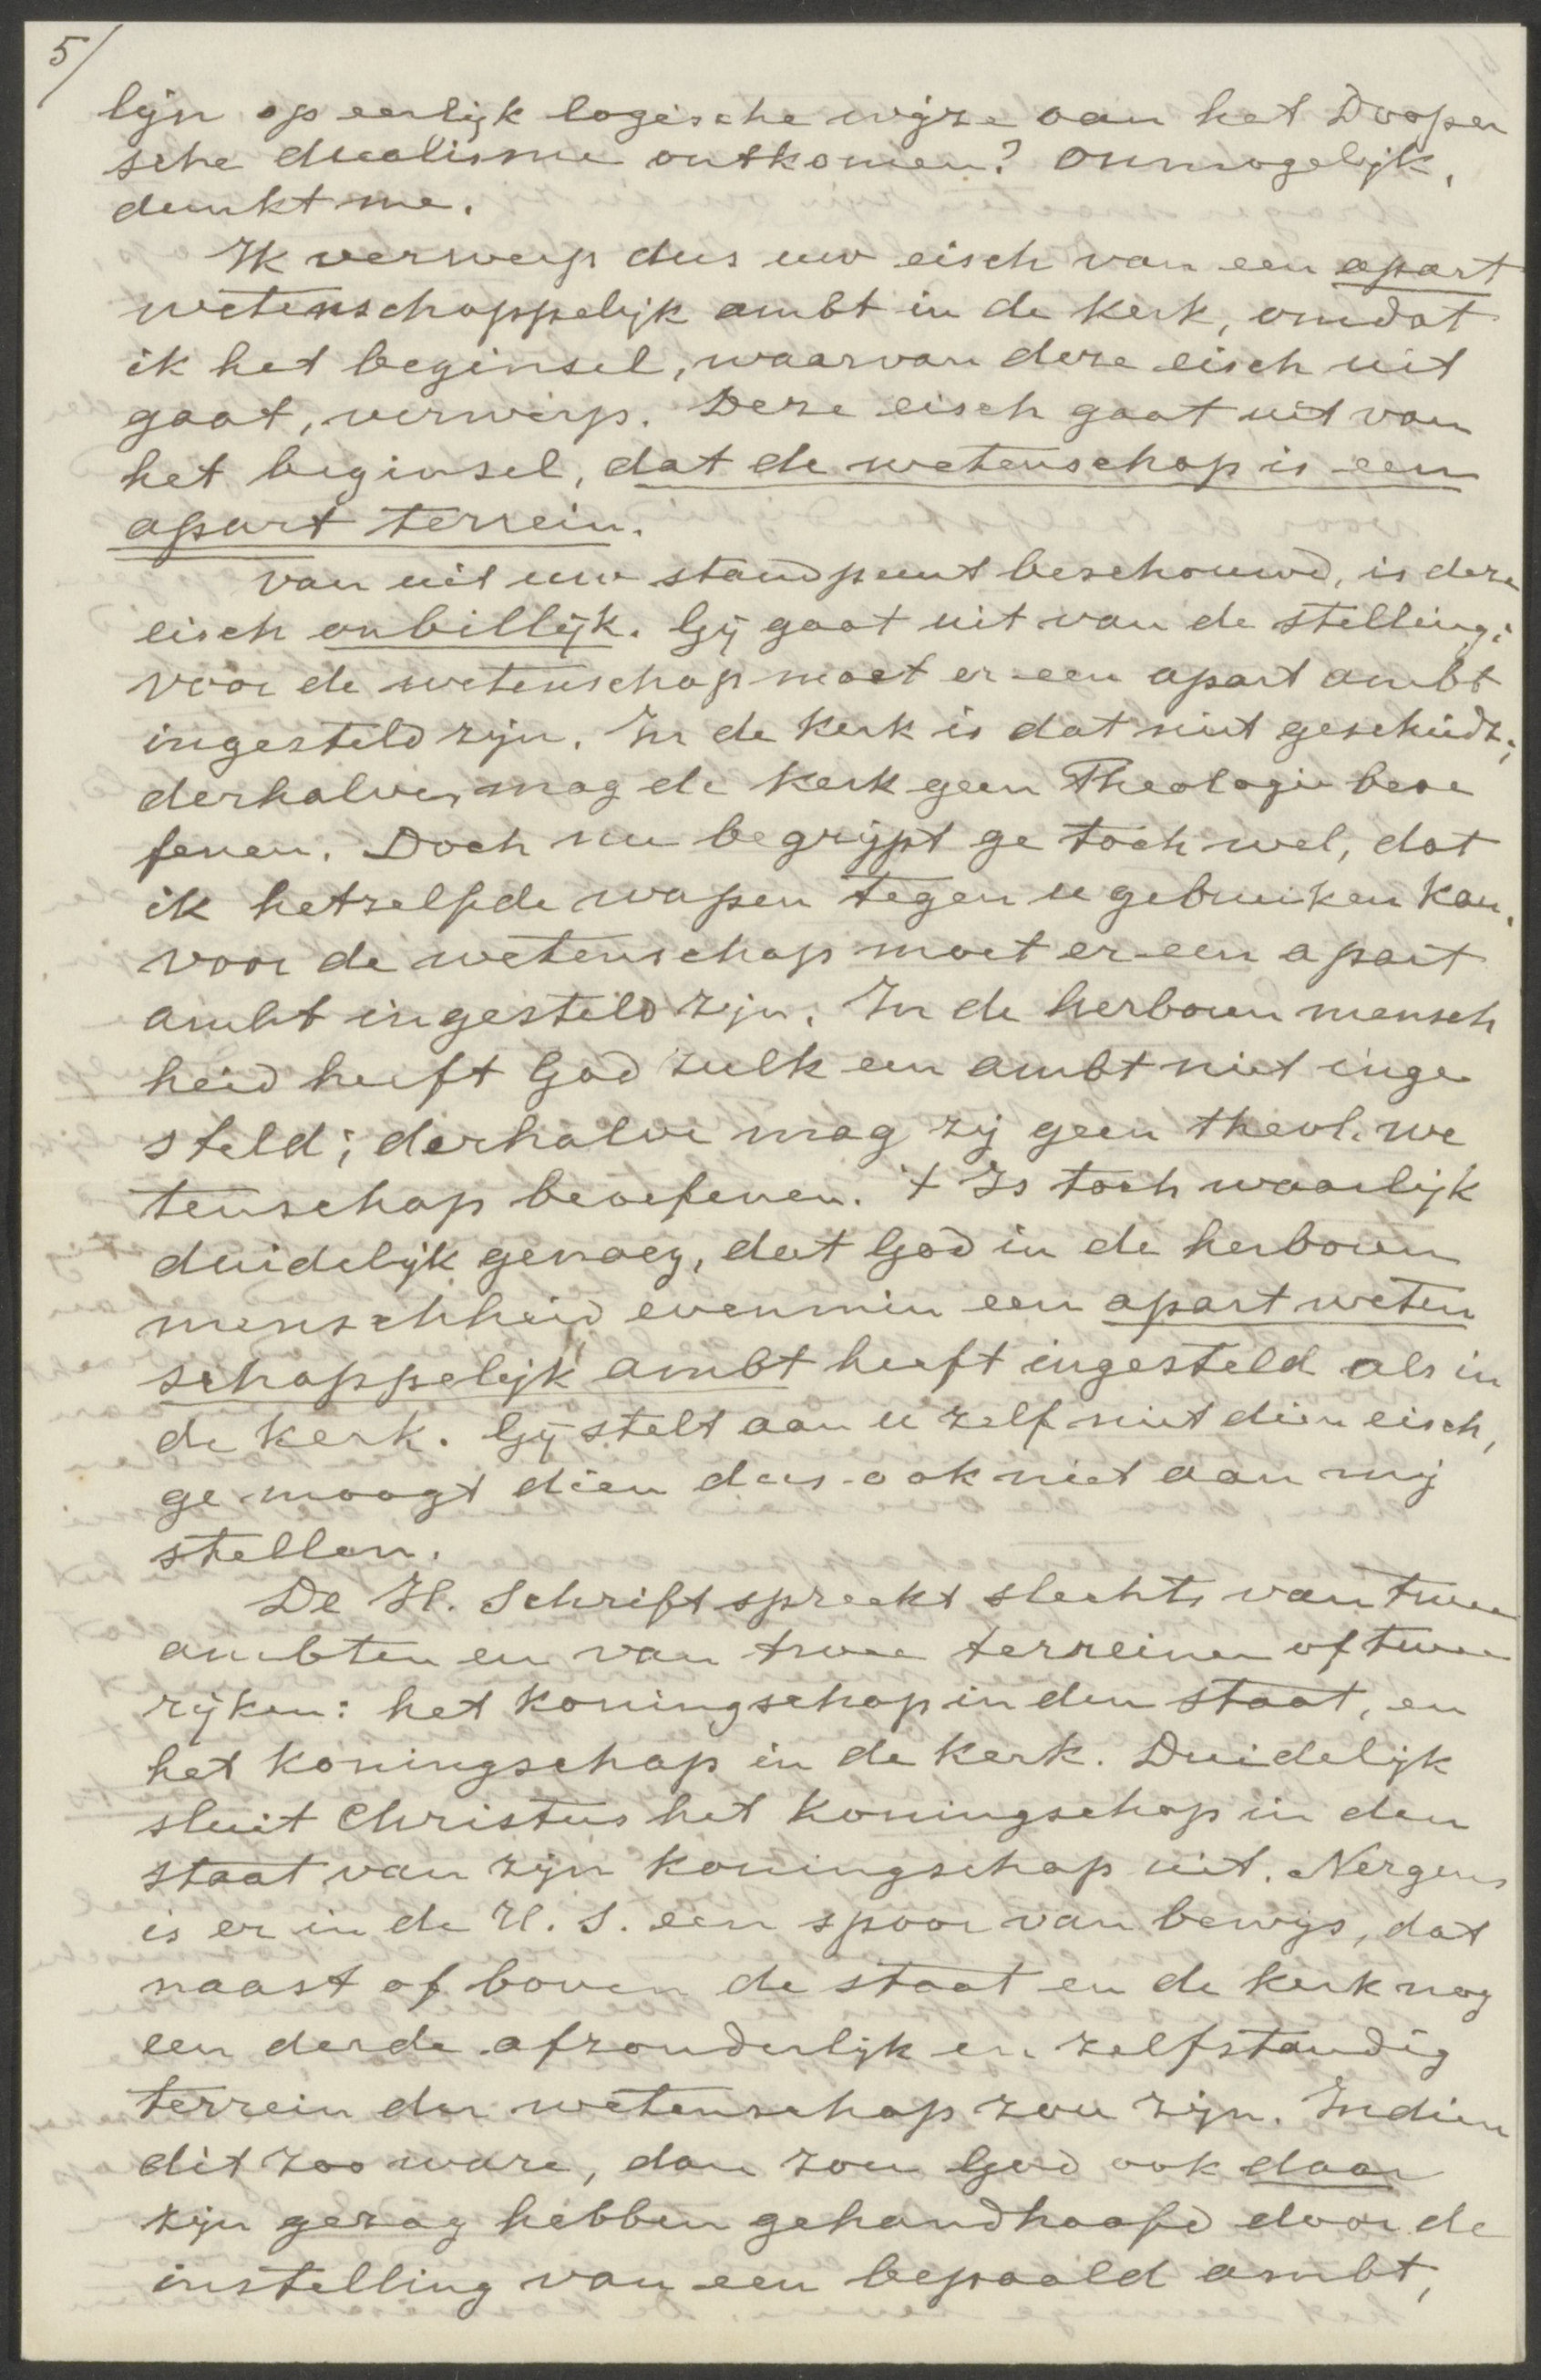 5/
lijn op eerlijk logische wijze aan het Dooper
sche dualisme ontkomen? Onmogelijk,
dunkt me.
Ik verwerp dus uw eisch van een apart
wetenschappelijk ambt in de Kerk, omdat
ik het beginsel, waarvan deze eisch uit
gaat, verwerp. Deze eisch gaat uit van
het beginsel, dat de wetenschap is een
apart terrein.
Van uit uw standpunt beschouwd, is deze
eisch onbillijk. Gij gaat uit van de stelling:
voor de wetenschap moet er een apart ambt
ingesteld zijn. In de Kerk is dat niet geschiedt;
derhalve, mag de Kerk geen Theologie beoe
fenen. Doch nu begrijpt ge toch wel, dat
ik hetzelfde wapen tegen u gebruiken kan.
Voor de wetenschap moet er een apart
ambt ingesteld zijn. In de herboren mensch
heid heeft God zulk een ambt niet inge
steld; derhalve mag zij geen theol. we
tenschap beoefenen. 't Is toch waarlijk
duidelijk genoeg, dat God in de herboren
menschheid evenmin een apart weten
schappelijk ambt heeft ingesteld als in
de Kerk. Gij stelt aan u zelf niet dien eisch,
ge moogt dien dus ook niet aan mij
stellen.
De H. Schrift spreekt slechts van twee
ambten en van twee terreinen of twee
rijken: het Koningschap in den Staat, en
het Koningschap in de Kerk. Duidelijk
sluit Christus het Koningschap in den
Staat van zijn Koningschap uit. Nergens
is er in de H. S. een spoor van bewijs, dat
naast of boven de staat en de Kerk nog
een derde afzonderlijk en zelfstandig
terrein der wetenschap zou zijn. Indien
dit zoo ware, dan zou God ook daar
zijn gezag hebben gehandhaafd door de
instelling van een bepaald ambt,